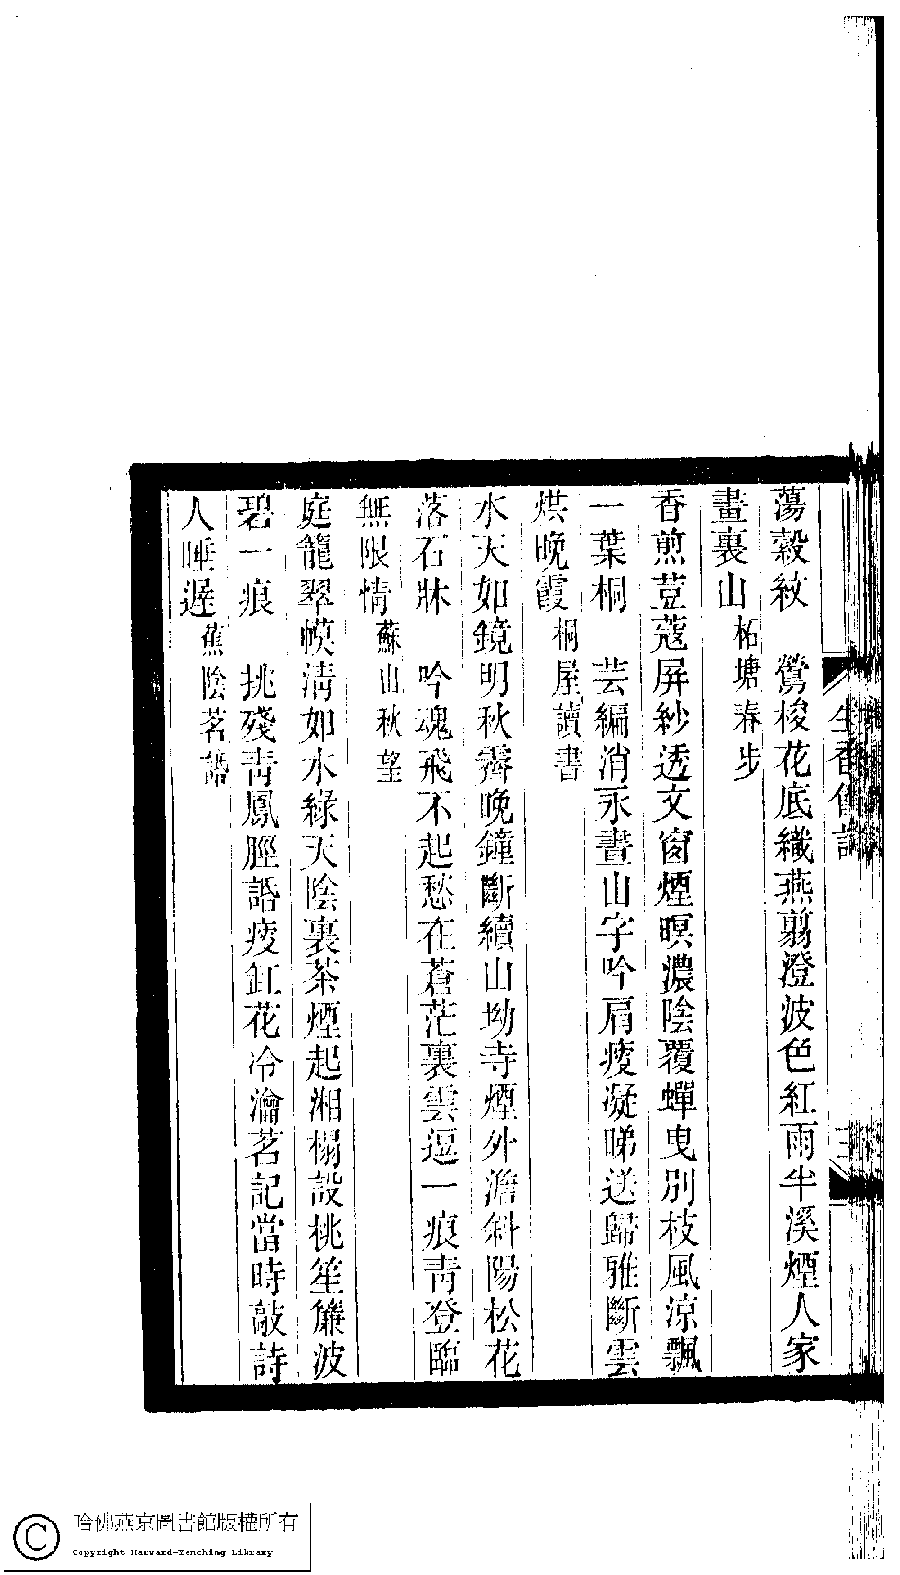 蕩縠紋　鶯梭花底織燕翦澄波色紅雨半溪煙人家
畫裏山柘塘春步
香煎荳蔻屏紗透文窗煙暝濃陰覆蟬曳別枝風涼飄
一葉桐　芸編消永晝山字吟肩瘦凝睇送歸雅斷雲
烘晚霞桐屋讀書
水天如鏡明秋霽晚鐘斷續山坳寺煙外澹斜陽松花
落石牀　吟魂飛不起愁在蒼茫裏雲逗一痕青登臨
無限情蘇山秋望
庭籠翠幙淸如水綠天陰裏茶煙起湘榻設桃笙簾波
碧一痕　挑殘靑鳳脛語疲缸花冷瀹茗記當時敲詩
人睡遲蕉陰茗語
生香
哈佛燕京圖書館版權所有
Copyright Harvard-Yenching Library